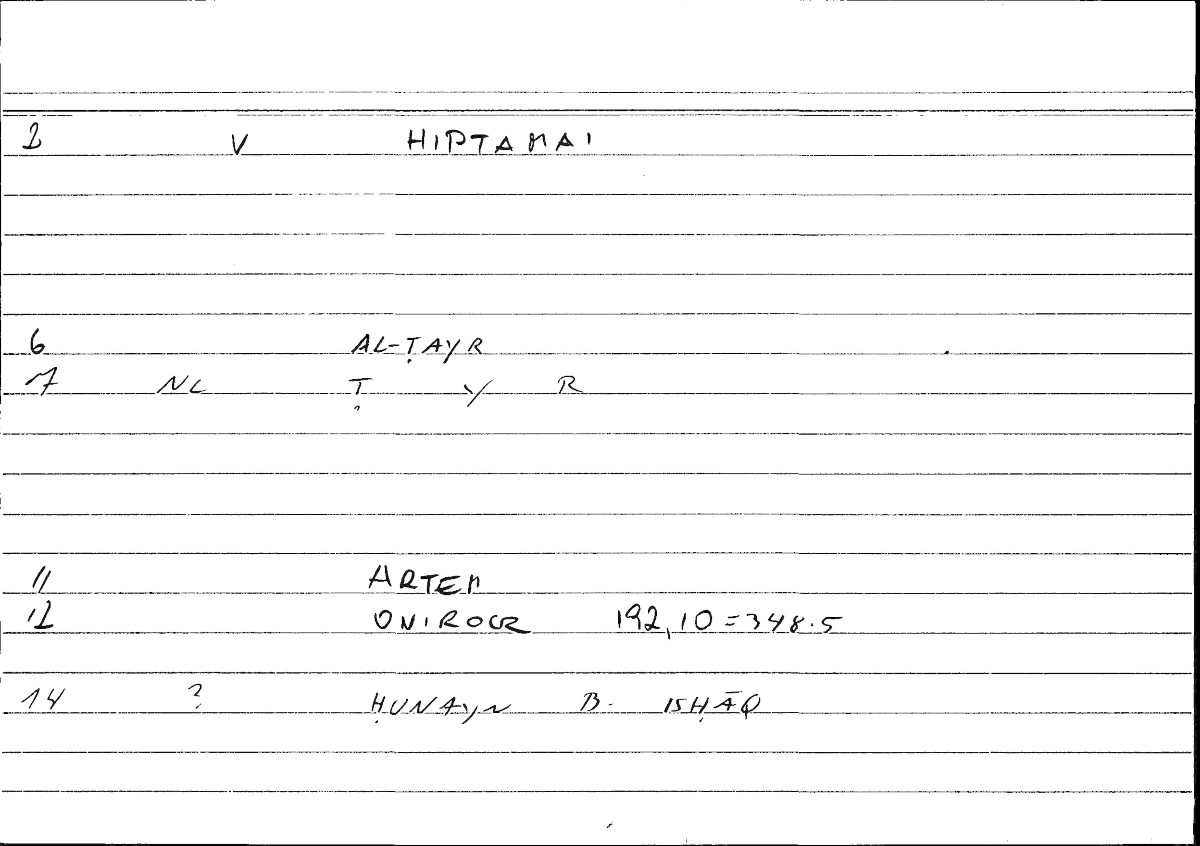 2 V HIPTAMAI
6 AL-ṬAYR
7 NL Ṭ Y R
11 ARTEM
12 ONIROCR 192,10=348.5
14 ? ḤUNAYN B. ISḤĀQ